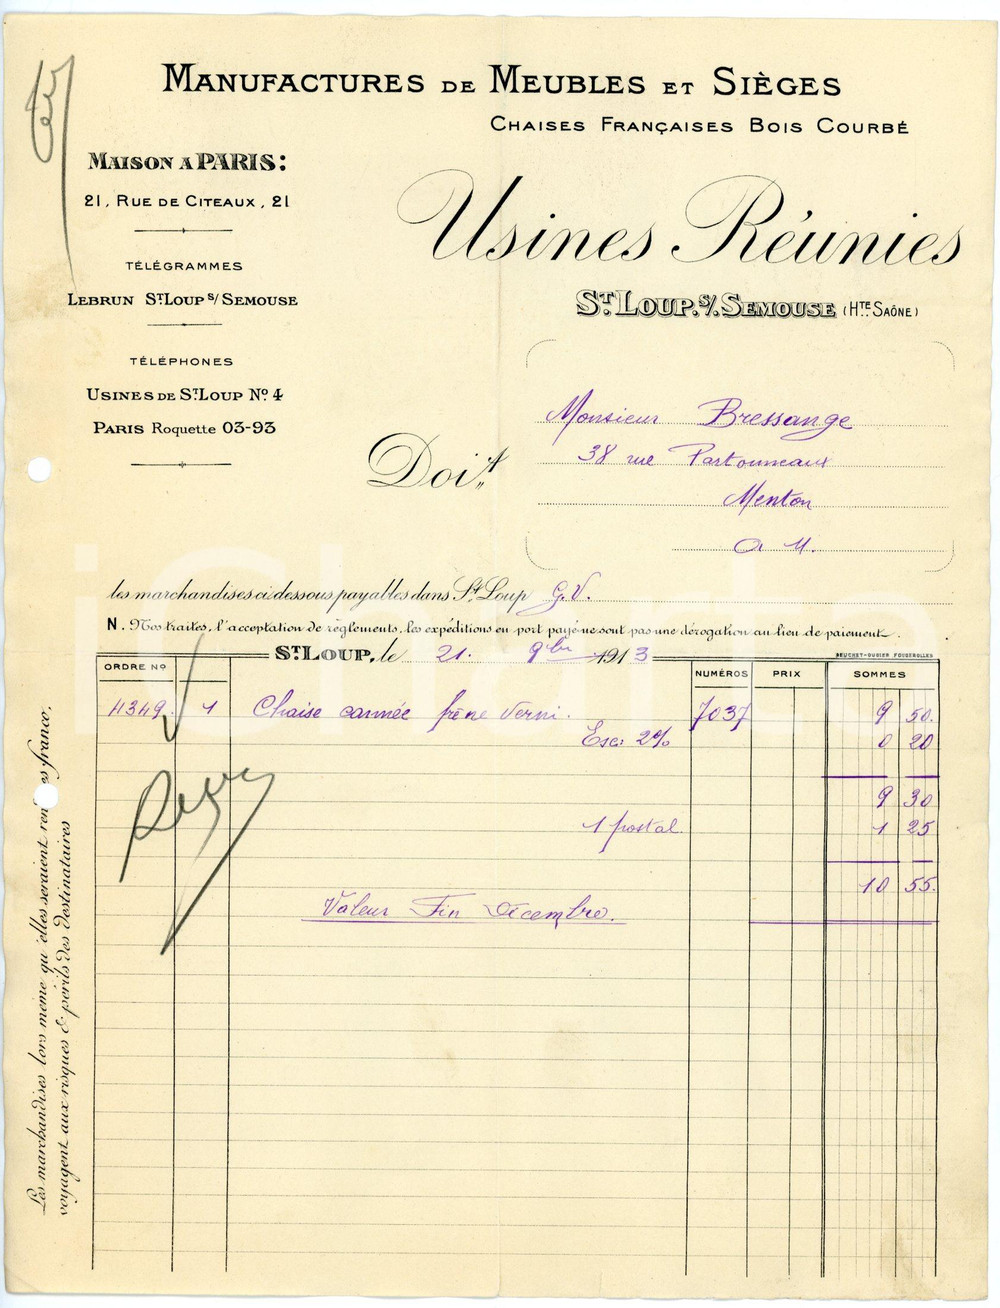 MANUFACTURES DE MEUBLES ET SIÈGES
CHAISES FRANÇAISES BOIS COURBÉ
MAISON A PARIS:
21, RUE DE CITEAUX, 21
TÉLÉGRAMMES
LEBRUN ST LOUP s/ SEMOUSE
TÉLÉPHONES
USINES DE ST LOUP No 4
PARIS Roquette 03-93
Usines Réunies
ST LOUP. s/. SEMOUSE (HTE SAÔNE)
Monsieur Bressange
38 rue Partouneaux
Menton
A M.
Doit
les marchandises ci dessous, payables dans St Loup G.V.
N. Nos traites, l'acceptation de règlements, les expéditions en port payé ne sont pas une dérogation au lieu de paiement.
ST LOUP, le 21. 9bre 1913
BEUCHET-OUGIER FOUGEROLLES
ORDRE No NUMÉROS PRIX SOMMES
4349 1 Chaise cannée frêne verni. 7037 9 50.
Esc: 2% 0 20
9 30
1 postal 1 25
10 55.
Valeur Fin Décembre.
Les marchandises lors même qu'elles seraient rendues franco,
voyagent aux risques & périls des destinataires
iCharta